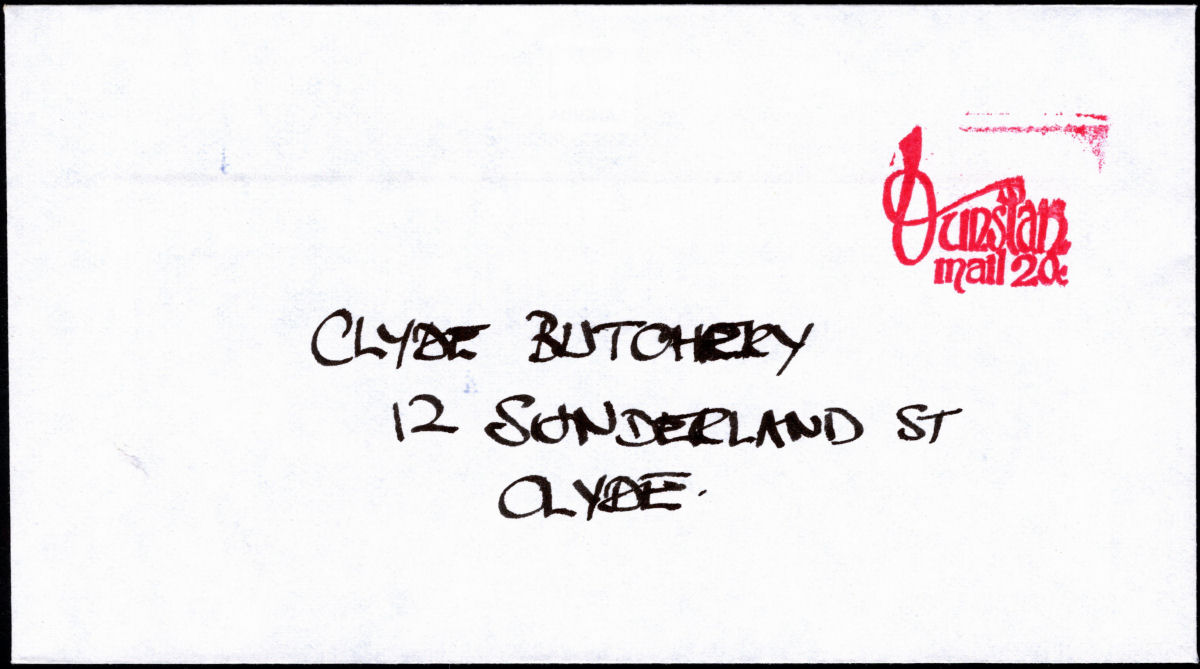 Dunstan
mail 20c
CLYDE BUTCHERY
12 SUNDERLAND ST
CLYDE.